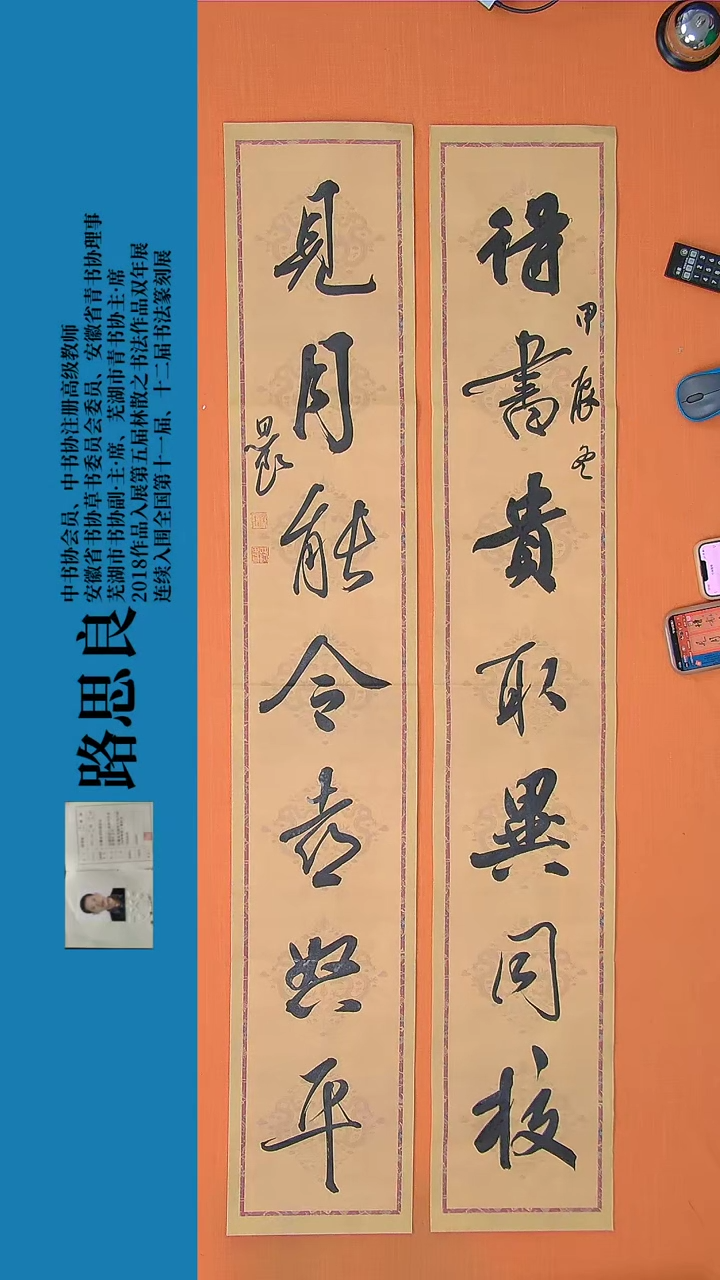 得書貴取異同校
甲辰冬
見月能令喜怒平
思良
路思良
中书协会员、中书协注册高级教师
安徽省书协草书委员会委员、安徽省青书协理事
芜湖市书协副·主·席、芜湖市青书协主·席
2018作品入展第五届林散之书法作品双年展
连续入围全国第十一届、十二届书法篆刻展